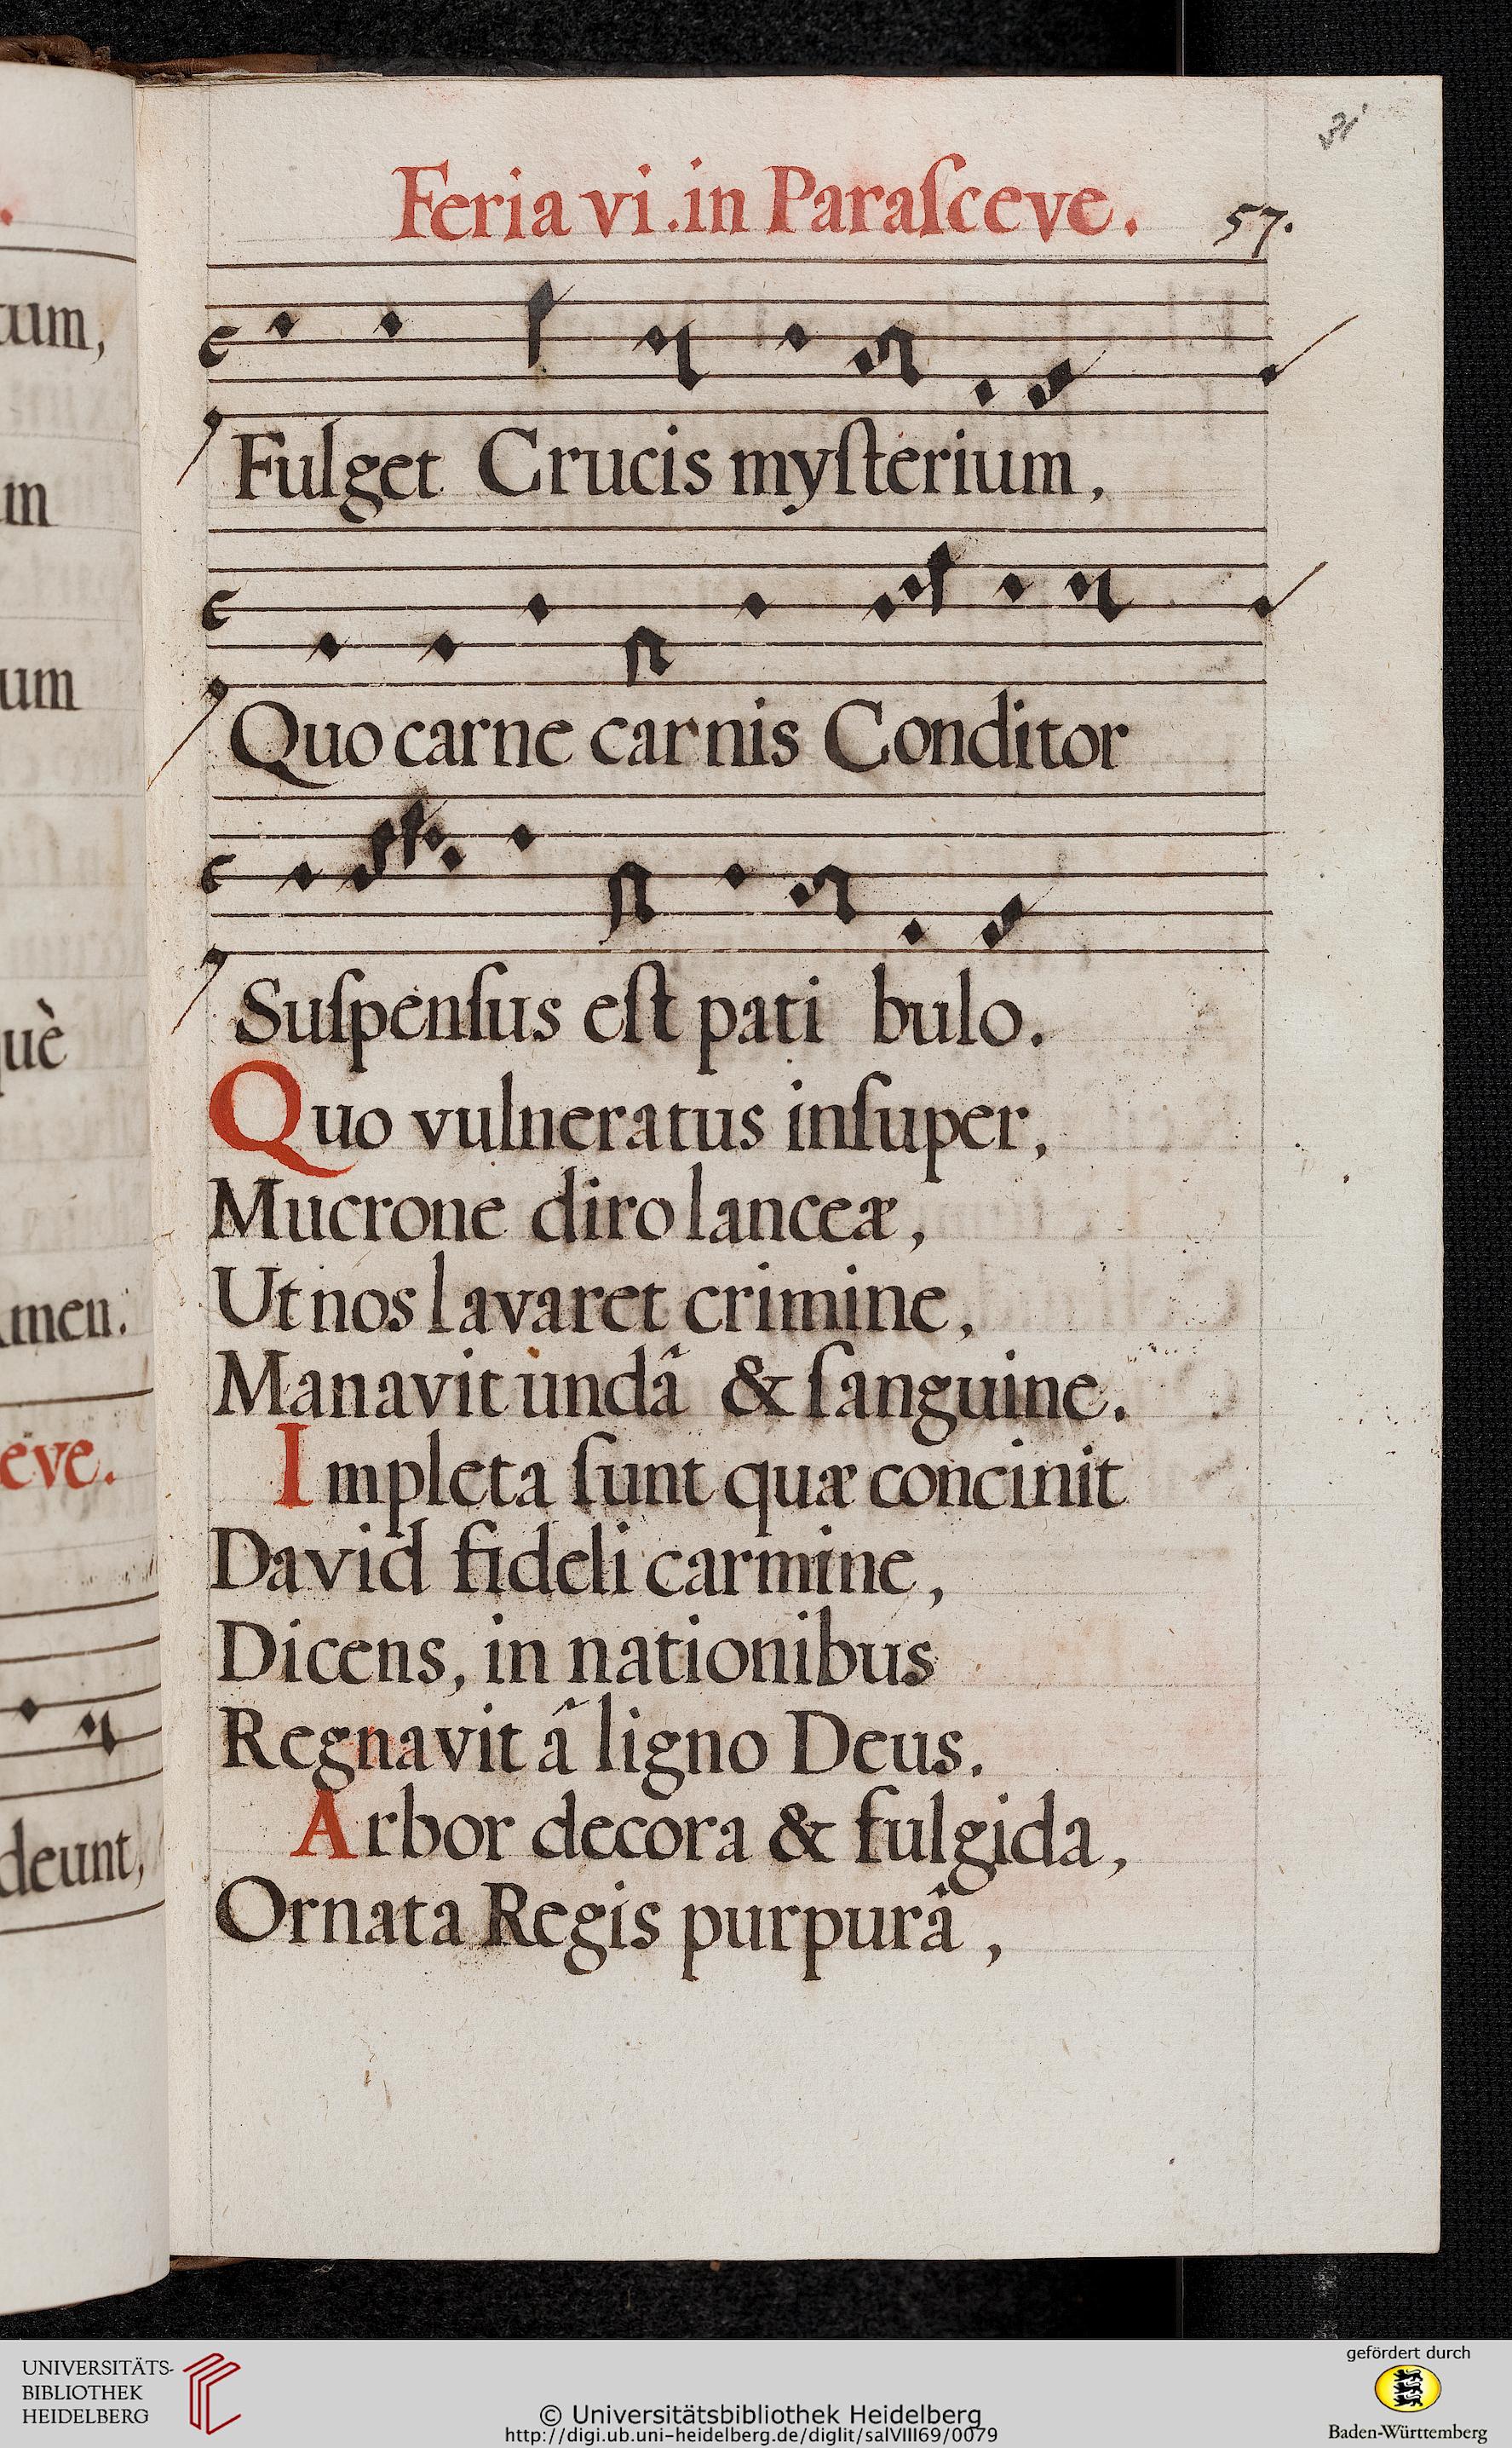 um,
m
um
uè
men.
eve.
deunt,
Feria vi. in Paraſceve.
57.
Fulget Crucis myſterium,
Quo carne carnis Conditor
Suſpenſus eſt pati bulo.
Quo vulneratus inſuper,
Mucrone diro lanceæ,
Ut nos lavaret crimine,
Manavit undâ & ſanguine.
Impleta ſunt quæ concinit
David fideli carmine,
Dicens, in nationibus
Regnavit â ligno Deus.
Arbor decora & fulgida,
Ornata Regis purpurâ,
UNIVERSITÄTS-
BIBLIOTHEK
HEIDELBERG
© Universitätsbibliothek Heidelberg
http://digi.ub.uni-heidelberg.de/diglit/salVIII69/0079
gefördert durch
Baden-Württemberg